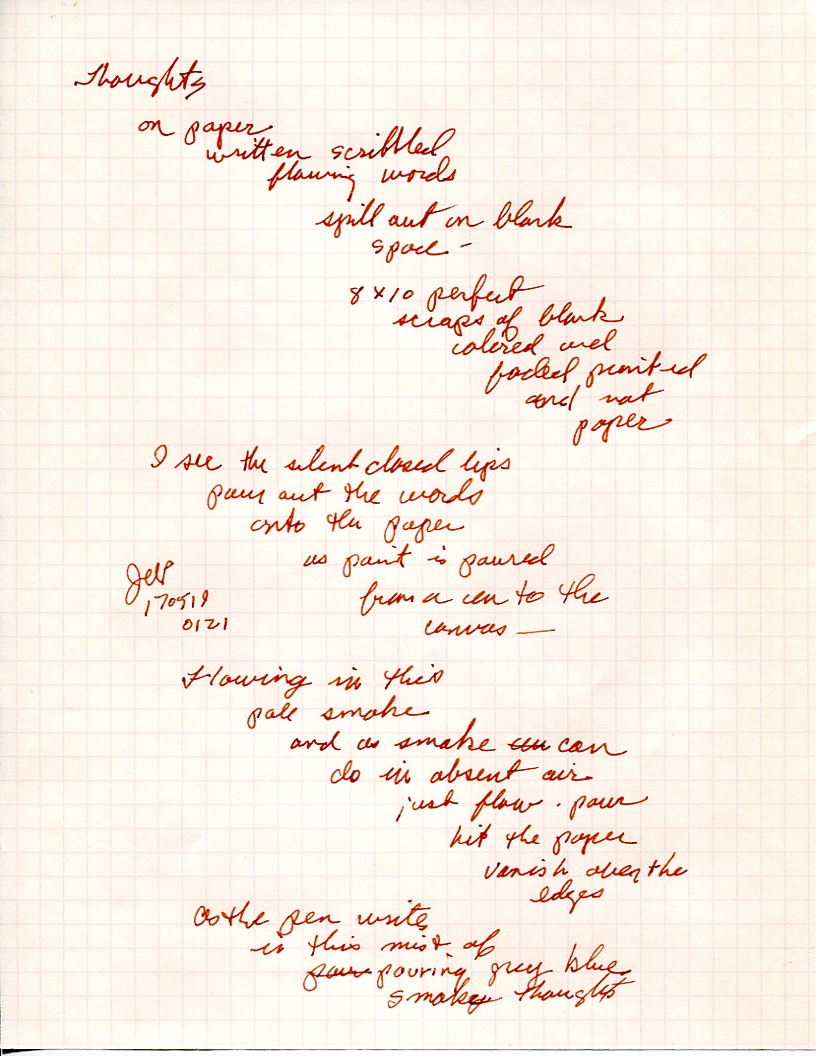 Thoughts
on paper
written scribbled
flowing words
spill out on blank
space -
8 x 10 perfect
scraps of blank
colored and
faded printed
and not
paper
I see the silent closed lips
pour out the words
onto the paper
as paint is poured
from a can to the
canvas —
170519
0121
Flowing in this
pale smoke
and as smoke can
do in absent air
just flow. pour
hit the paper
vanish over the
edges
as the pen writes
in this mist of
pouring grey blue
smokey thoughts